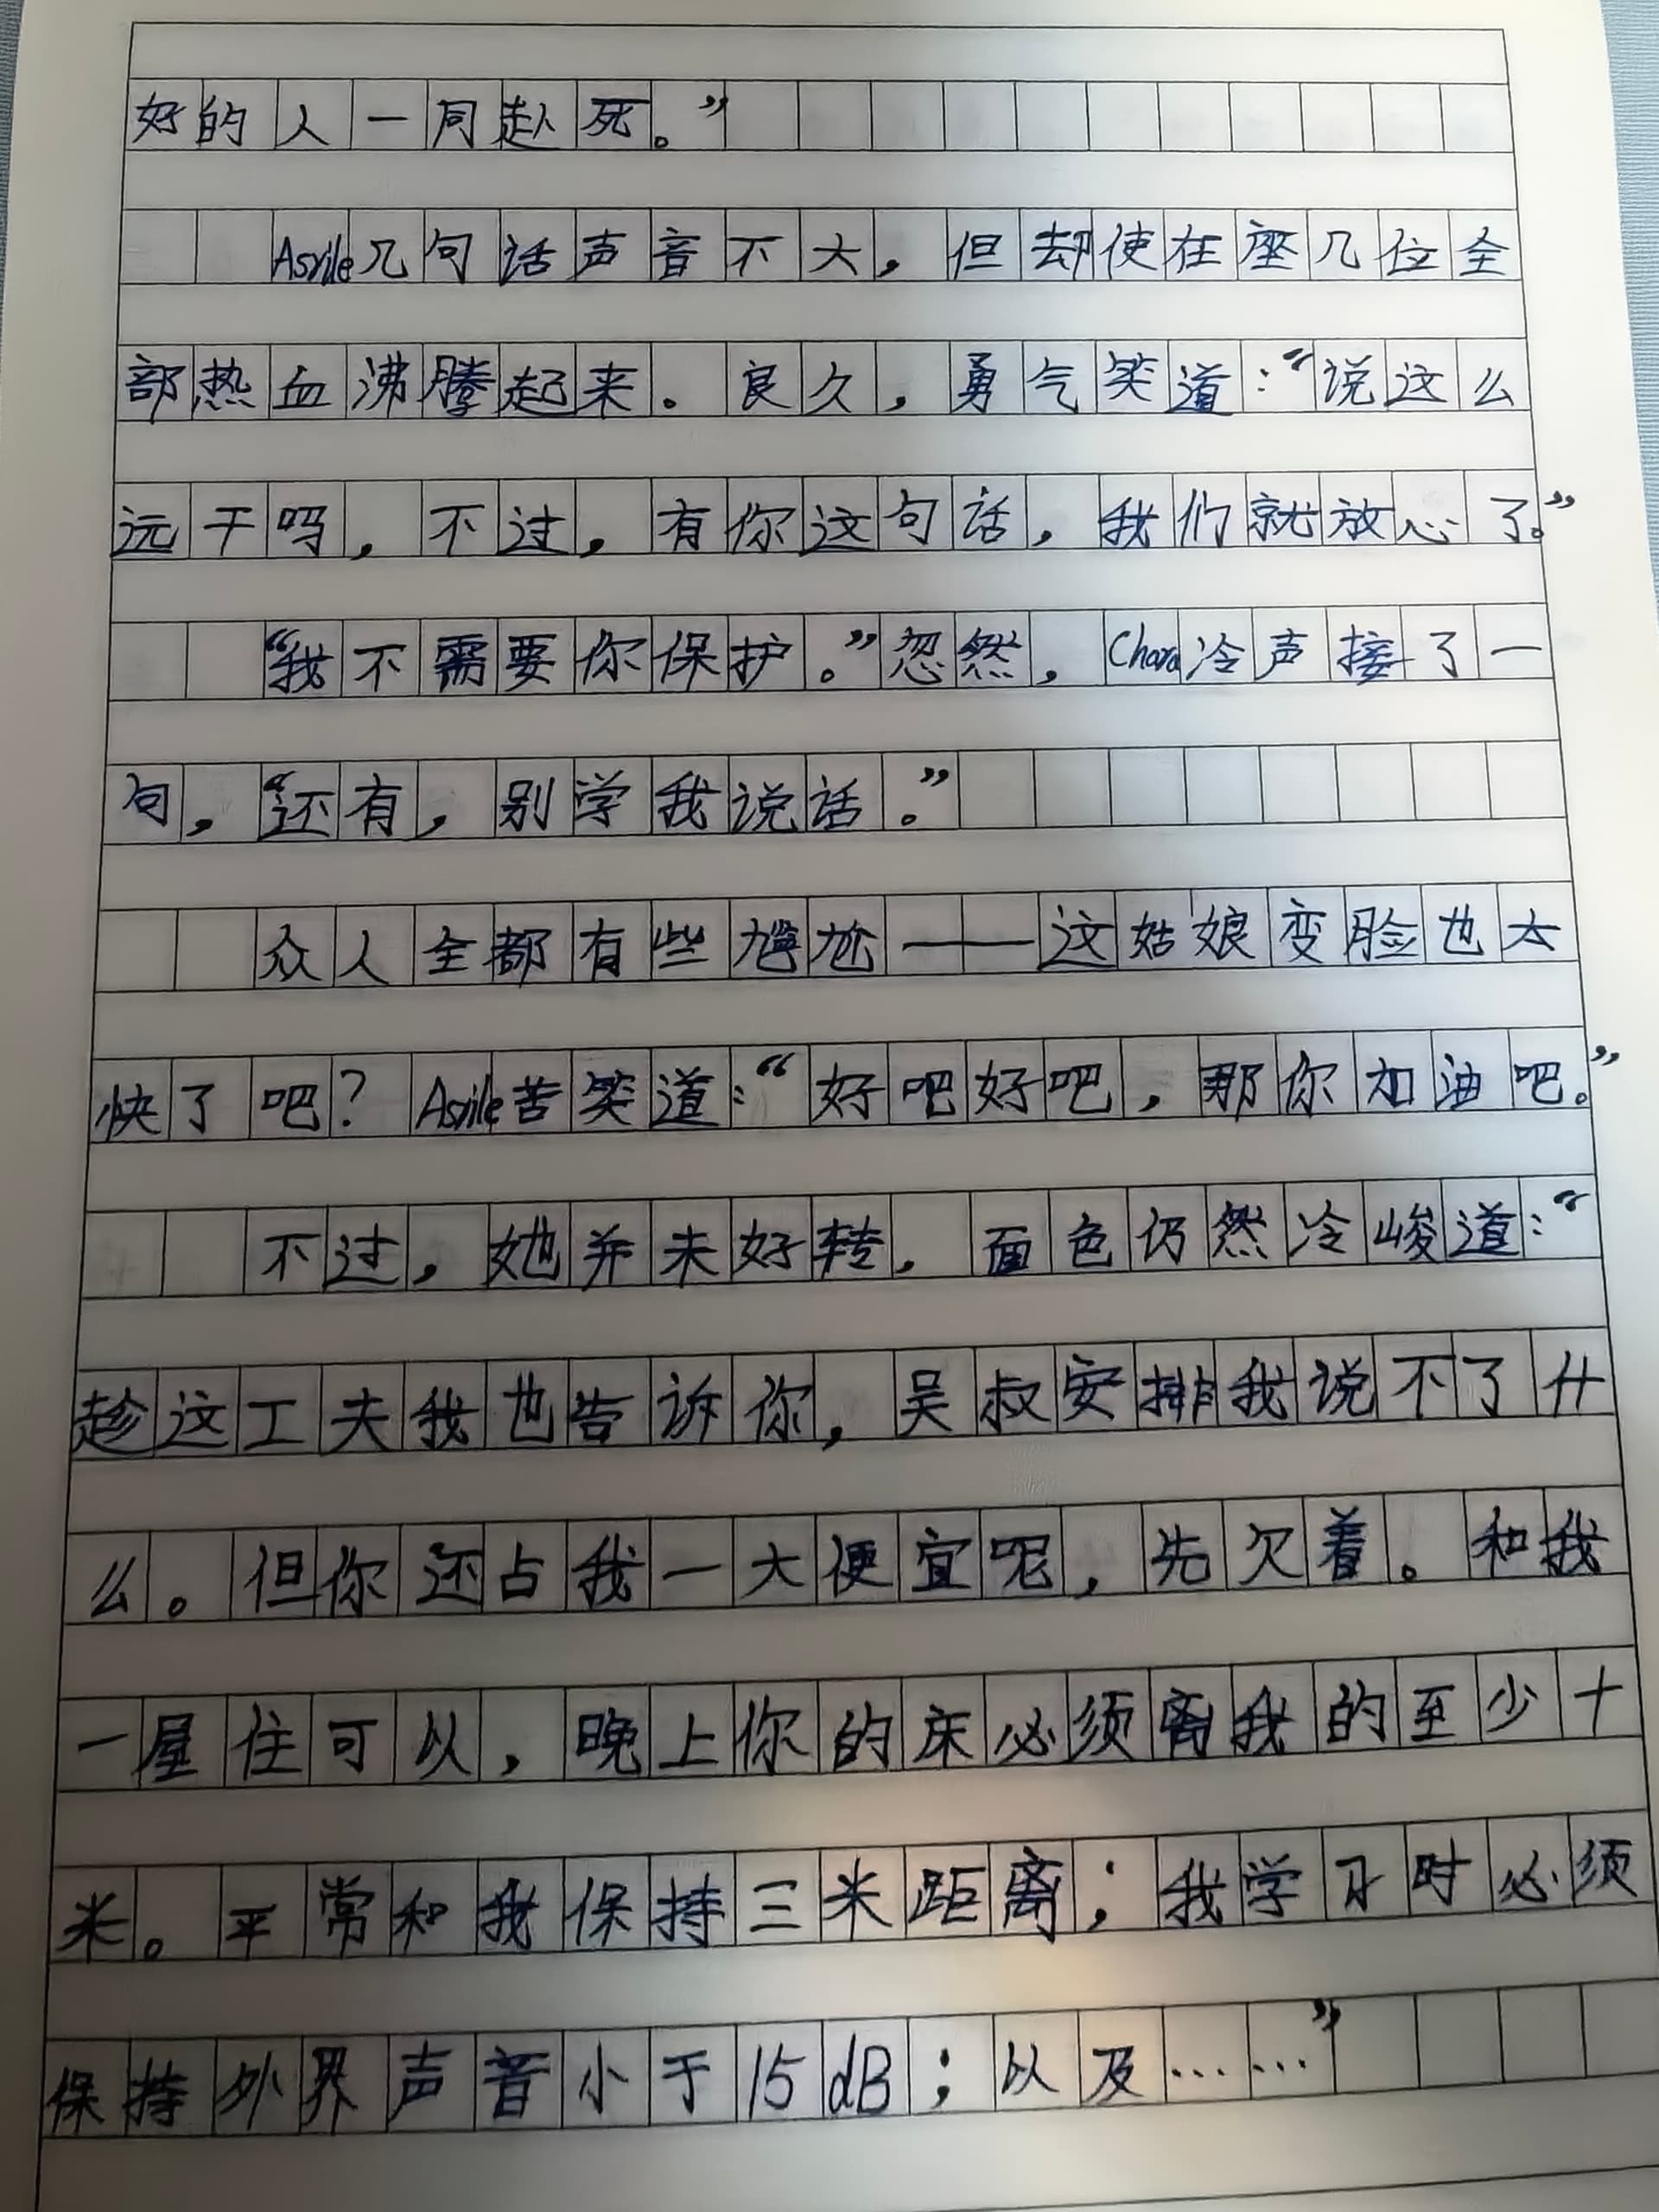 好的人一同赴死。”
Asrile几句话声音不大，但却使在座几位全
部热血沸腾起来。良久，勇气笑道：“说这么
远干吗，不过，有你这句话，我们就放心了。”
“我不需要你保护。”忽然，Chara冷声接了一
句，“还有，别学我说话。”
众人全都有些尴尬——这姑娘变脸也太
快了吧？Asrile苦笑道：“好吧好吧，那你加油吧。”
不过，她并未好转，面色仍然冷峻道：“
趁这工夫我也告诉你，吴叔安排我说不了什
么。但你还占我一大便宜呢，先欠着。和我
一屋住可以，晚上你的床必须离我的至少十
米。平常和我保持三米距离；我学习时必须
保持外界声音小于15dB；以及……”